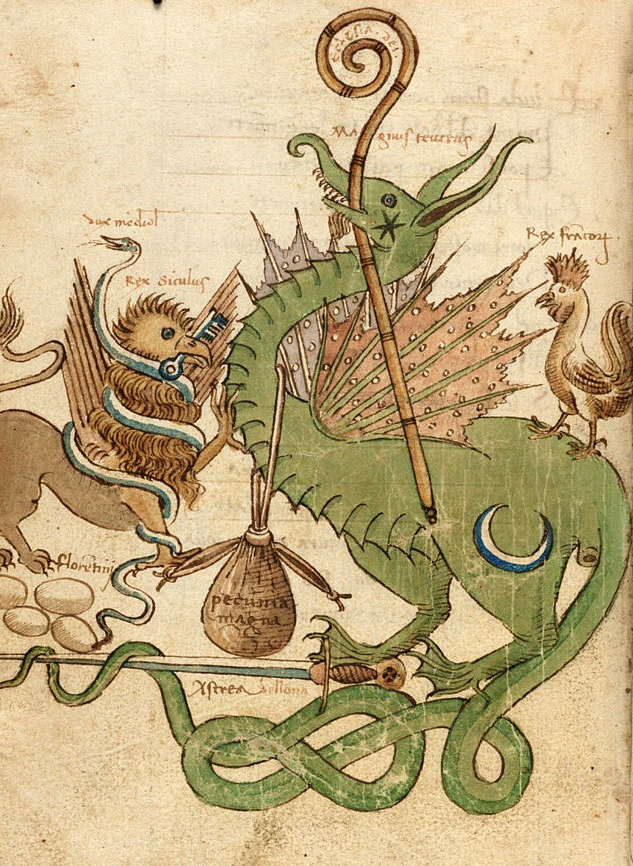 Ecclesia. dei.
Magnus teucrus
dux mediol
Rex Siculus
Rex francorj.
florentinj
pecunia
magna
Astrea bellona